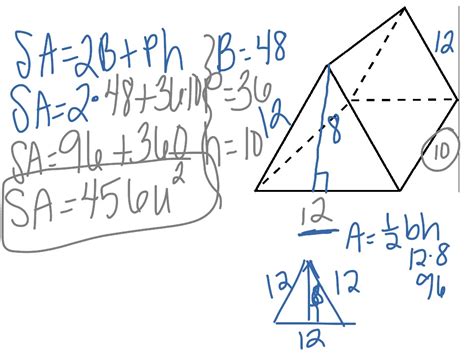 SA=2B+Ph B=48
SA=2·48+36·10 P=36
SA=96+360 h=10
SA=456u²
12
8
12
10
12
A=½bh
12·8
96
12
8
12
12